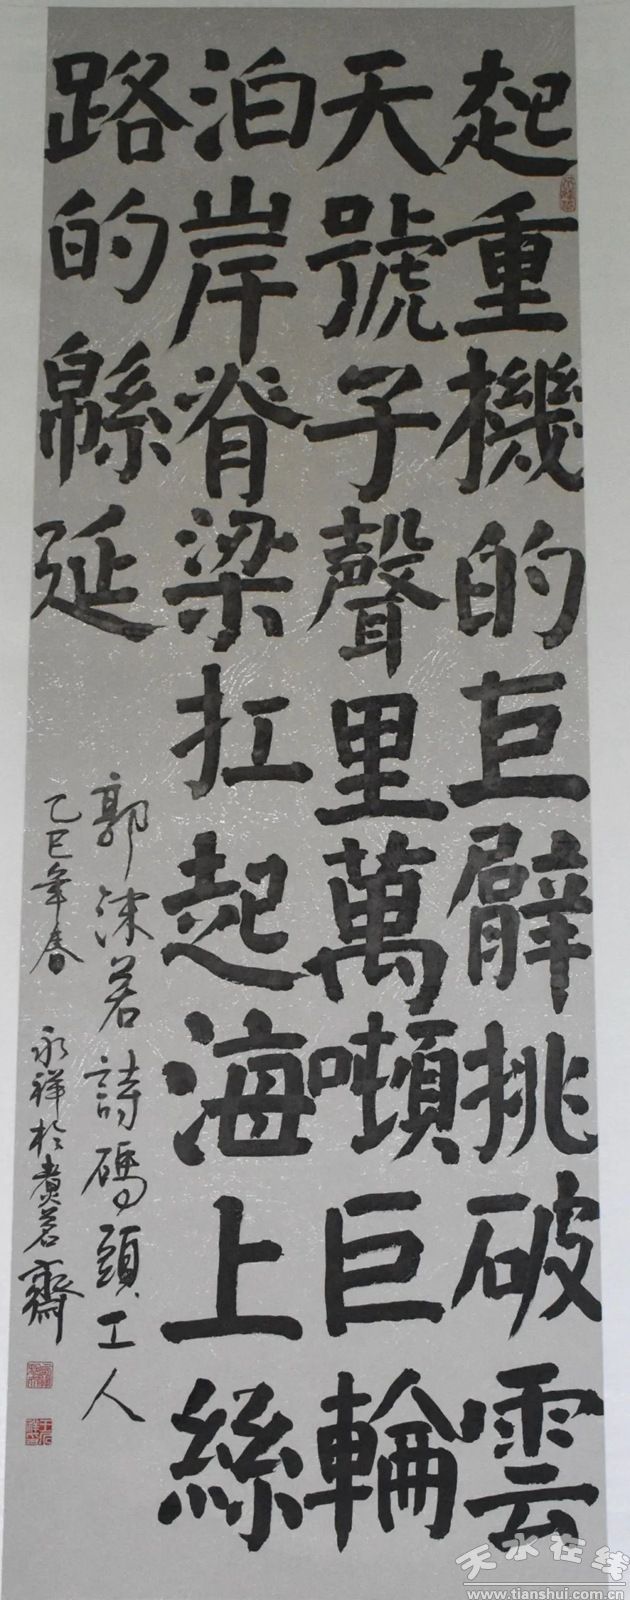 起重機的巨臂挑破雲
天號子聲里萬噸巨輪
泊岸脊梁扛起海上絲
路的緜延
郭沫若詩碼頭工人
乙巳年春 永祥於煮茗齋
天水在线
www.tianshui.com.cn